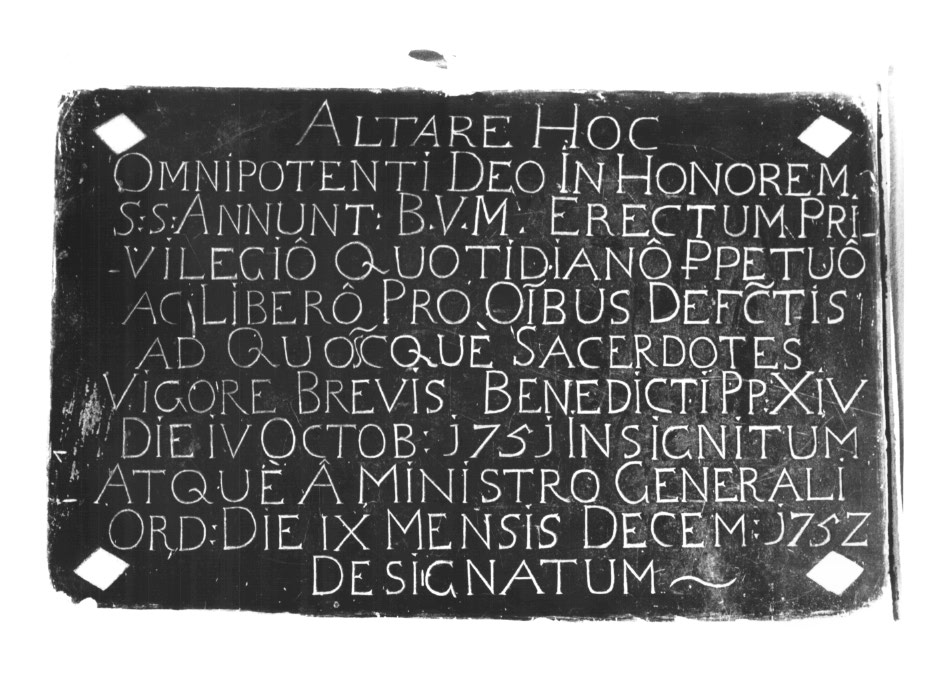 ALTARE HOC
OMNIPOTENTI DEO IN HONOREM
S:S:ANNUNT: B.V.M. ERECTUM PRI-
-VILEGIÔ QUOTIDIANÔ PPETUÔ
AC LIBERÔ PRO OIBUS DEFCTIS
AD QUOSCQUÈ SACERDOTES
VIGORE BREVIS BENEDICTI PP.XIV
DIE IV OCTOB: 1751 INSIGNITUM
ATQUÈ Â MINISTRO GENERALI
ORD: DIE IX MENSIS DECEM: 1752
DESIGNATUM